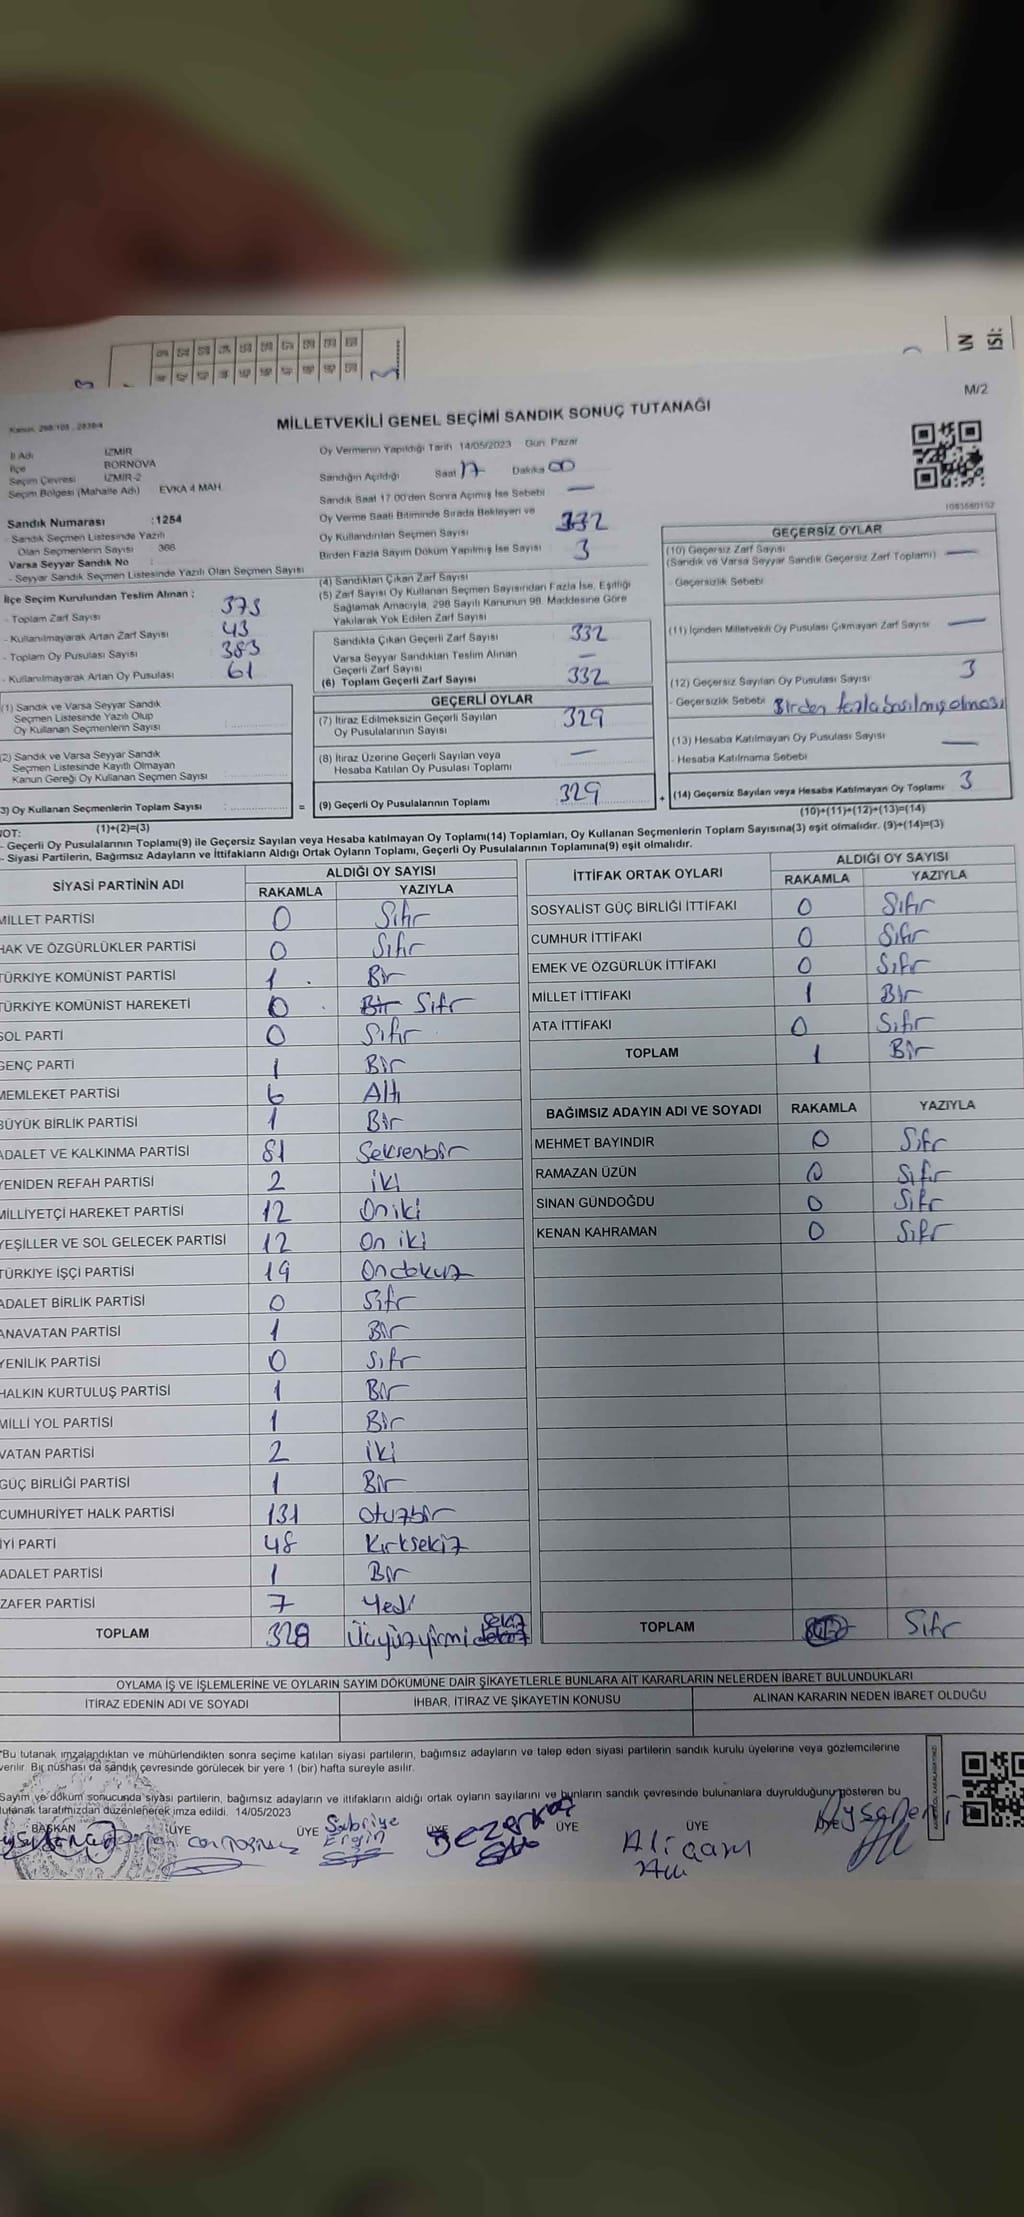 M/2
Kanun: 298/105 , 2839/4
MİLLETVEKİLİ GENEL SEÇİMİ SANDIK SONUÇ TUTANAĞI
İl Adı İZMİR
İlçe BORNOVA
Seçim Çevresi İZMİR-2
Seçim Bölgesi (Mahalle Adı) EVKA 4 MAH.
Sandık Numarası :1254
- Sandık Seçmen Listesinde Yazılı
Olan Seçmenlerin Sayısı : 366
Varsa Seyyar Sandık No :
- Seyyar Sandık Seçmen Listesinde Yazılı Olan Seçmen Sayısı :
İlçe Seçim Kurulundan Teslim Alınan :
- Toplam Zarf Sayısı 375
- Kullanılmayarak Artan Zarf Sayısı 43
- Toplam Oy Pusulası Sayısı 383
- Kullanılmayarak Artan Oy Pusulası 61
(1) Sandık ve Varsa Seyyar Sandık
Seçmen Listesinde Yazılı Olup
Oy Kullanan Seçmenlerin Sayısı
(2) Sandık ve Varsa Seyyar Sandık
Seçmen Listesinde Kayıtlı Olmayan
Kanun Gereği Oy Kullanan Seçmen Sayısı
3) Oy Kullanan Seçmenlerin Toplam Sayısı :
(1)+(2)=(3)
Oy Vermenin Yapıldığı Tarih 14/05/2023 Gün: Pazar
Sandığın Açıldığı Saat 17 Dakika 00
Sandık Saat 17.00'den Sonra Açılmış İse Sebebi —
Oy Verme Saati Bitiminde Sırada Bekleyen ve
Oy Kullandırılan Seçmen Sayısı 332
Birden Fazla Sayım Döküm Yapılmış İse Sayısı 3
(4) Sandıktan Çıkan Zarf Sayısı
(5) Zarf Sayısı Oy Kullanan Seçmen Sayısından Fazla İse, Eşitliği
Sağlamak Amacıyla, 298 Sayılı Kanunun 98. Maddesine Göre
Yakılarak Yok Edilen Zarf Sayısı
Sandıkta Çıkan Geçerli Zarf Sayısı 332
Varsa Seyyar Sandıktan Teslim Alınan
Geçerli Zarf Sayısı —
(6) Toplam Geçerli Zarf Sayısı 332
GEÇERLİ OYLAR
(7) İtiraz Edilmeksizin Geçerli Sayılan
Oy Pusulalarının Sayısı 329
(8) İtiraz Üzerine Geçerli Sayılan veya
Hesaba Katılan Oy Pusulası Toplamı —
= (9) Geçerli Oy Pusulalarının Toplamı : 329
1083560152
GEÇERSİZ OYLAR
(10) Geçersiz Zarf Sayısı
(Sandık ve Varsa Seyyar Sandık Geçersiz Zarf Toplamı) —
- Geçersizlik Sebebi
(11) İçinden Milletvekili Oy Pusulası Çıkmayan Zarf Sayısı —
(12) Geçersiz Sayılan Oy Pusulası Sayısı 3
- Geçersizlik Sebebi Birden fazla basılmış olması
(13) Hesaba Katılmayan Oy Pusulası Sayısı —
- Hesaba Katılmama Sebebi
+ (14) Geçersiz Sayılan veya Hesaba Katılmayan Oy Toplamı 3
(10)+(11)+(12)+(13)=(14)
NOT:
- Geçerli Oy Pusulalarının Toplamı(9) ile Geçersiz Sayılan veya Hesaba katılmayan Oy Toplamı(14) Toplamları, Oy Kullanan Seçmenlerin Toplam Sayısına(3) eşit olmalıdır. (9)+(14)=(3)
- Siyasi Partilerin, Bağımsız Adayların ve İttifakların Aldığı Ortak Oyların Toplamı, Geçerli Oy Pusulalarının Toplamına(9) eşit olmalıdır.
SİYASİ PARTİNİN ADI ALDIĞI OY SAYISI
RAKAMLA YAZIYLA
MİLLET PARTİSİ 0 Sıfır
HAK VE ÖZGÜRLÜKLER PARTİSİ 0 Sıfır
TÜRKİYE KOMÜNİST PARTİSİ 1 Bir
TÜRKİYE KOMÜNİST HAREKETİ 0 Bir Sıfır
SOL PARTİ 0 Sıfır
GENÇ PARTİ 1 Bir
MEMLEKET PARTİSİ 6 Altı
BÜYÜK BİRLİK PARTİSİ 1 Bir
ADALET VE KALKINMA PARTİSİ 81 Seksenbir
YENİDEN REFAH PARTİSİ 2 iki
MİLLİYETÇİ HAREKET PARTİSİ 12 Oniki
YEŞİLLER VE SOL GELECEK PARTİSİ 12 On iki
TÜRKİYE İŞÇİ PARTİSİ 19 Ondokuz
ADALET BİRLİK PARTİSİ 0 Sıfır
ANAVATAN PARTİSİ 1 Bir
YENİLİK PARTİSİ 0 Sıfır
HALKIN KURTULUŞ PARTİSİ 1 Bir
MİLLİ YOL PARTİSİ 1 Bir
VATAN PARTİSİ 2 iki
GÜÇ BİRLİĞİ PARTİSİ 1 Bir
CUMHURİYET HALK PARTİSİ 131 otuzbir
İYİ PARTİ 48 Kırksekiz
ADALET PARTİSİ 1 Bir
ZAFER PARTİSİ 7 Yedi
TOPLAM 328 Üçyüzyirmi sekiz
İTTİFAK ORTAK OYLARI ALDIĞI OY SAYISI
RAKAMLA YAZIYLA
SOSYALİST GÜÇ BİRLİĞİ İTTİFAKI 0 Sıfır
CUMHUR İTTİFAKI 0 Sıfır
EMEK VE ÖZGÜRLÜK İTTİFAKI 0 Sıfır
MİLLET İTTİFAKI 1 Bir
ATA İTTİFAKI 0 Sıfır
TOPLAM 1 Bir
BAĞIMSIZ ADAYIN ADI VE SOYADI RAKAMLA YAZIYLA
MEHMET BAYINDIR 0 Sıfır
RAMAZAN ÜZÜN 0 Sıfır
SİNAN GÜNDOĞDU 0 Sıfır
KENAN KAHRAMAN 0 Sıfır
TOPLAM Sıfır
OYLAMA İŞ VE İŞLEMLERİNE VE OYLARIN SAYIM DÖKÜMÜNE DAİR ŞİKAYETLERLE BUNLARA AİT KARARLARIN NELERDEN İBARET BULUNDUKLARI
İTİRAZ EDENİN ADI VE SOYADI İHBAR, İTİRAZ VE ŞİKAYETİN KONUSU ALINAN KARARIN NEDEN İBARET OLDUĞU
*Bu tutanak imzalandıktan ve mühürlendikten sonra seçime katılan siyasi partilerin, bağımsız adayların ve talep eden siyasi partilerin sandık kurulu üyelerine veya gözlemcilerine
verilir. Bir nüshası da sandık çevresinde görülecek bir yere 1 (bir) hafta süreyle asılır.
Sayım ve döküm sonucunda siyasi partilerin, bağımsız adayların ve ittifakların aldığı ortak oyların sayılarını ve bunların sandık çevresinde bulunanlara duyrulduğunu gösteren bu
tutanak tarafımızdan düzenlenerek imza edildi. 14/05/2023
BAŞKAN ÜYE ÜYE ÜYE ÜYE ÜYE ÜYE
Sabriye
Ergin
Ali çam